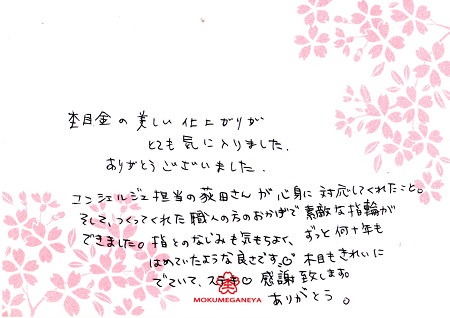 杢目金の美しい仕上がりが
とても気に入りました.
ありがとうございました.
コンシェルジェ担当の荻田さんが心身に対応してくれたこと。
そして、つくってくれた職人の方のおかげで素敵な指輪が
できました。指とのなじみも気もちよく、ずっと何十年も
はめていたような良さです。木目もきれいに
でていて、ステキ♡ 感謝致します。
MOKUMEGANEYA
ありがとう。